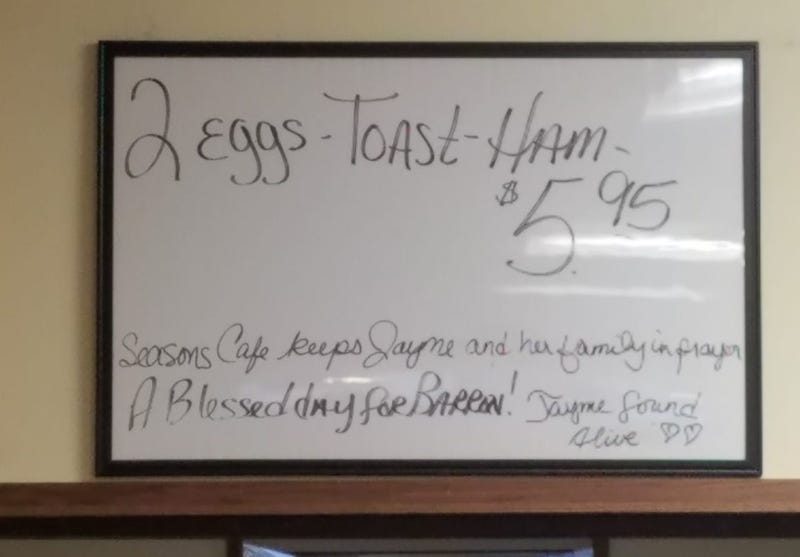 2 Eggs - Toast - Ham -
$5.95
Seasons Cafe keeps Jayme and her family in prayer
A Blessed day for Barron! Jayme found
Alive ♡♡